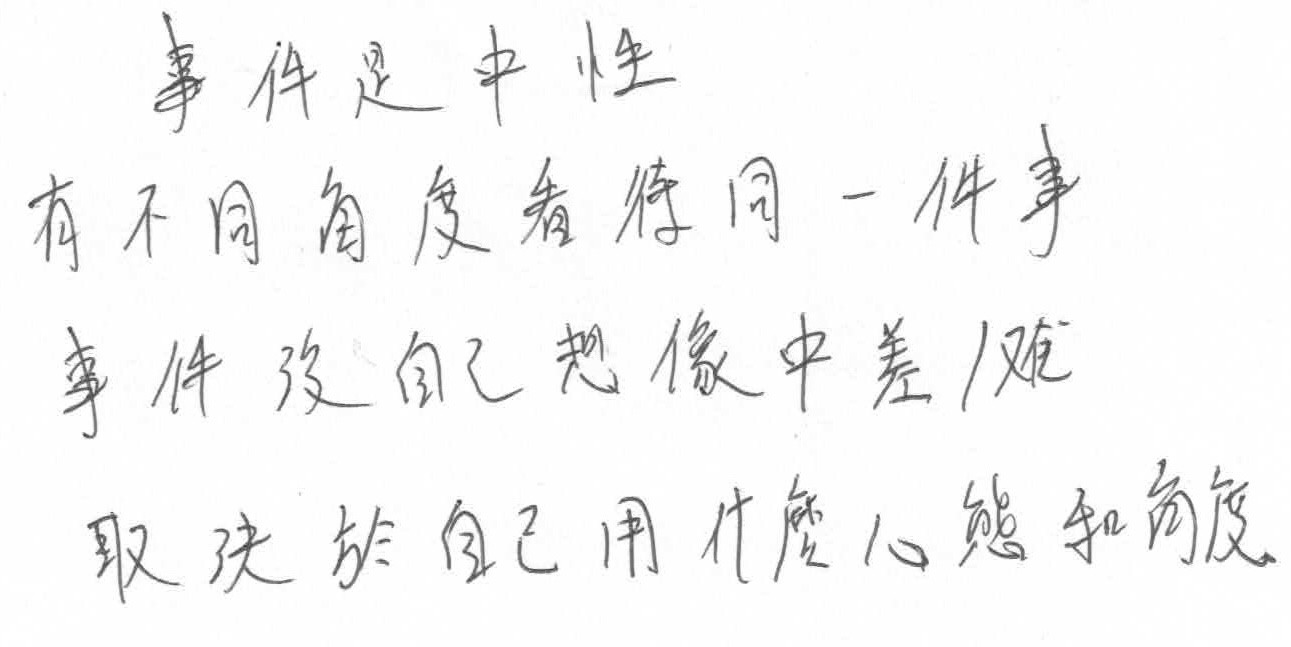 事件是中性
有不同角度看待同一件事
事件沒自己想像中差/难
取決於自己用什麼心態和角度